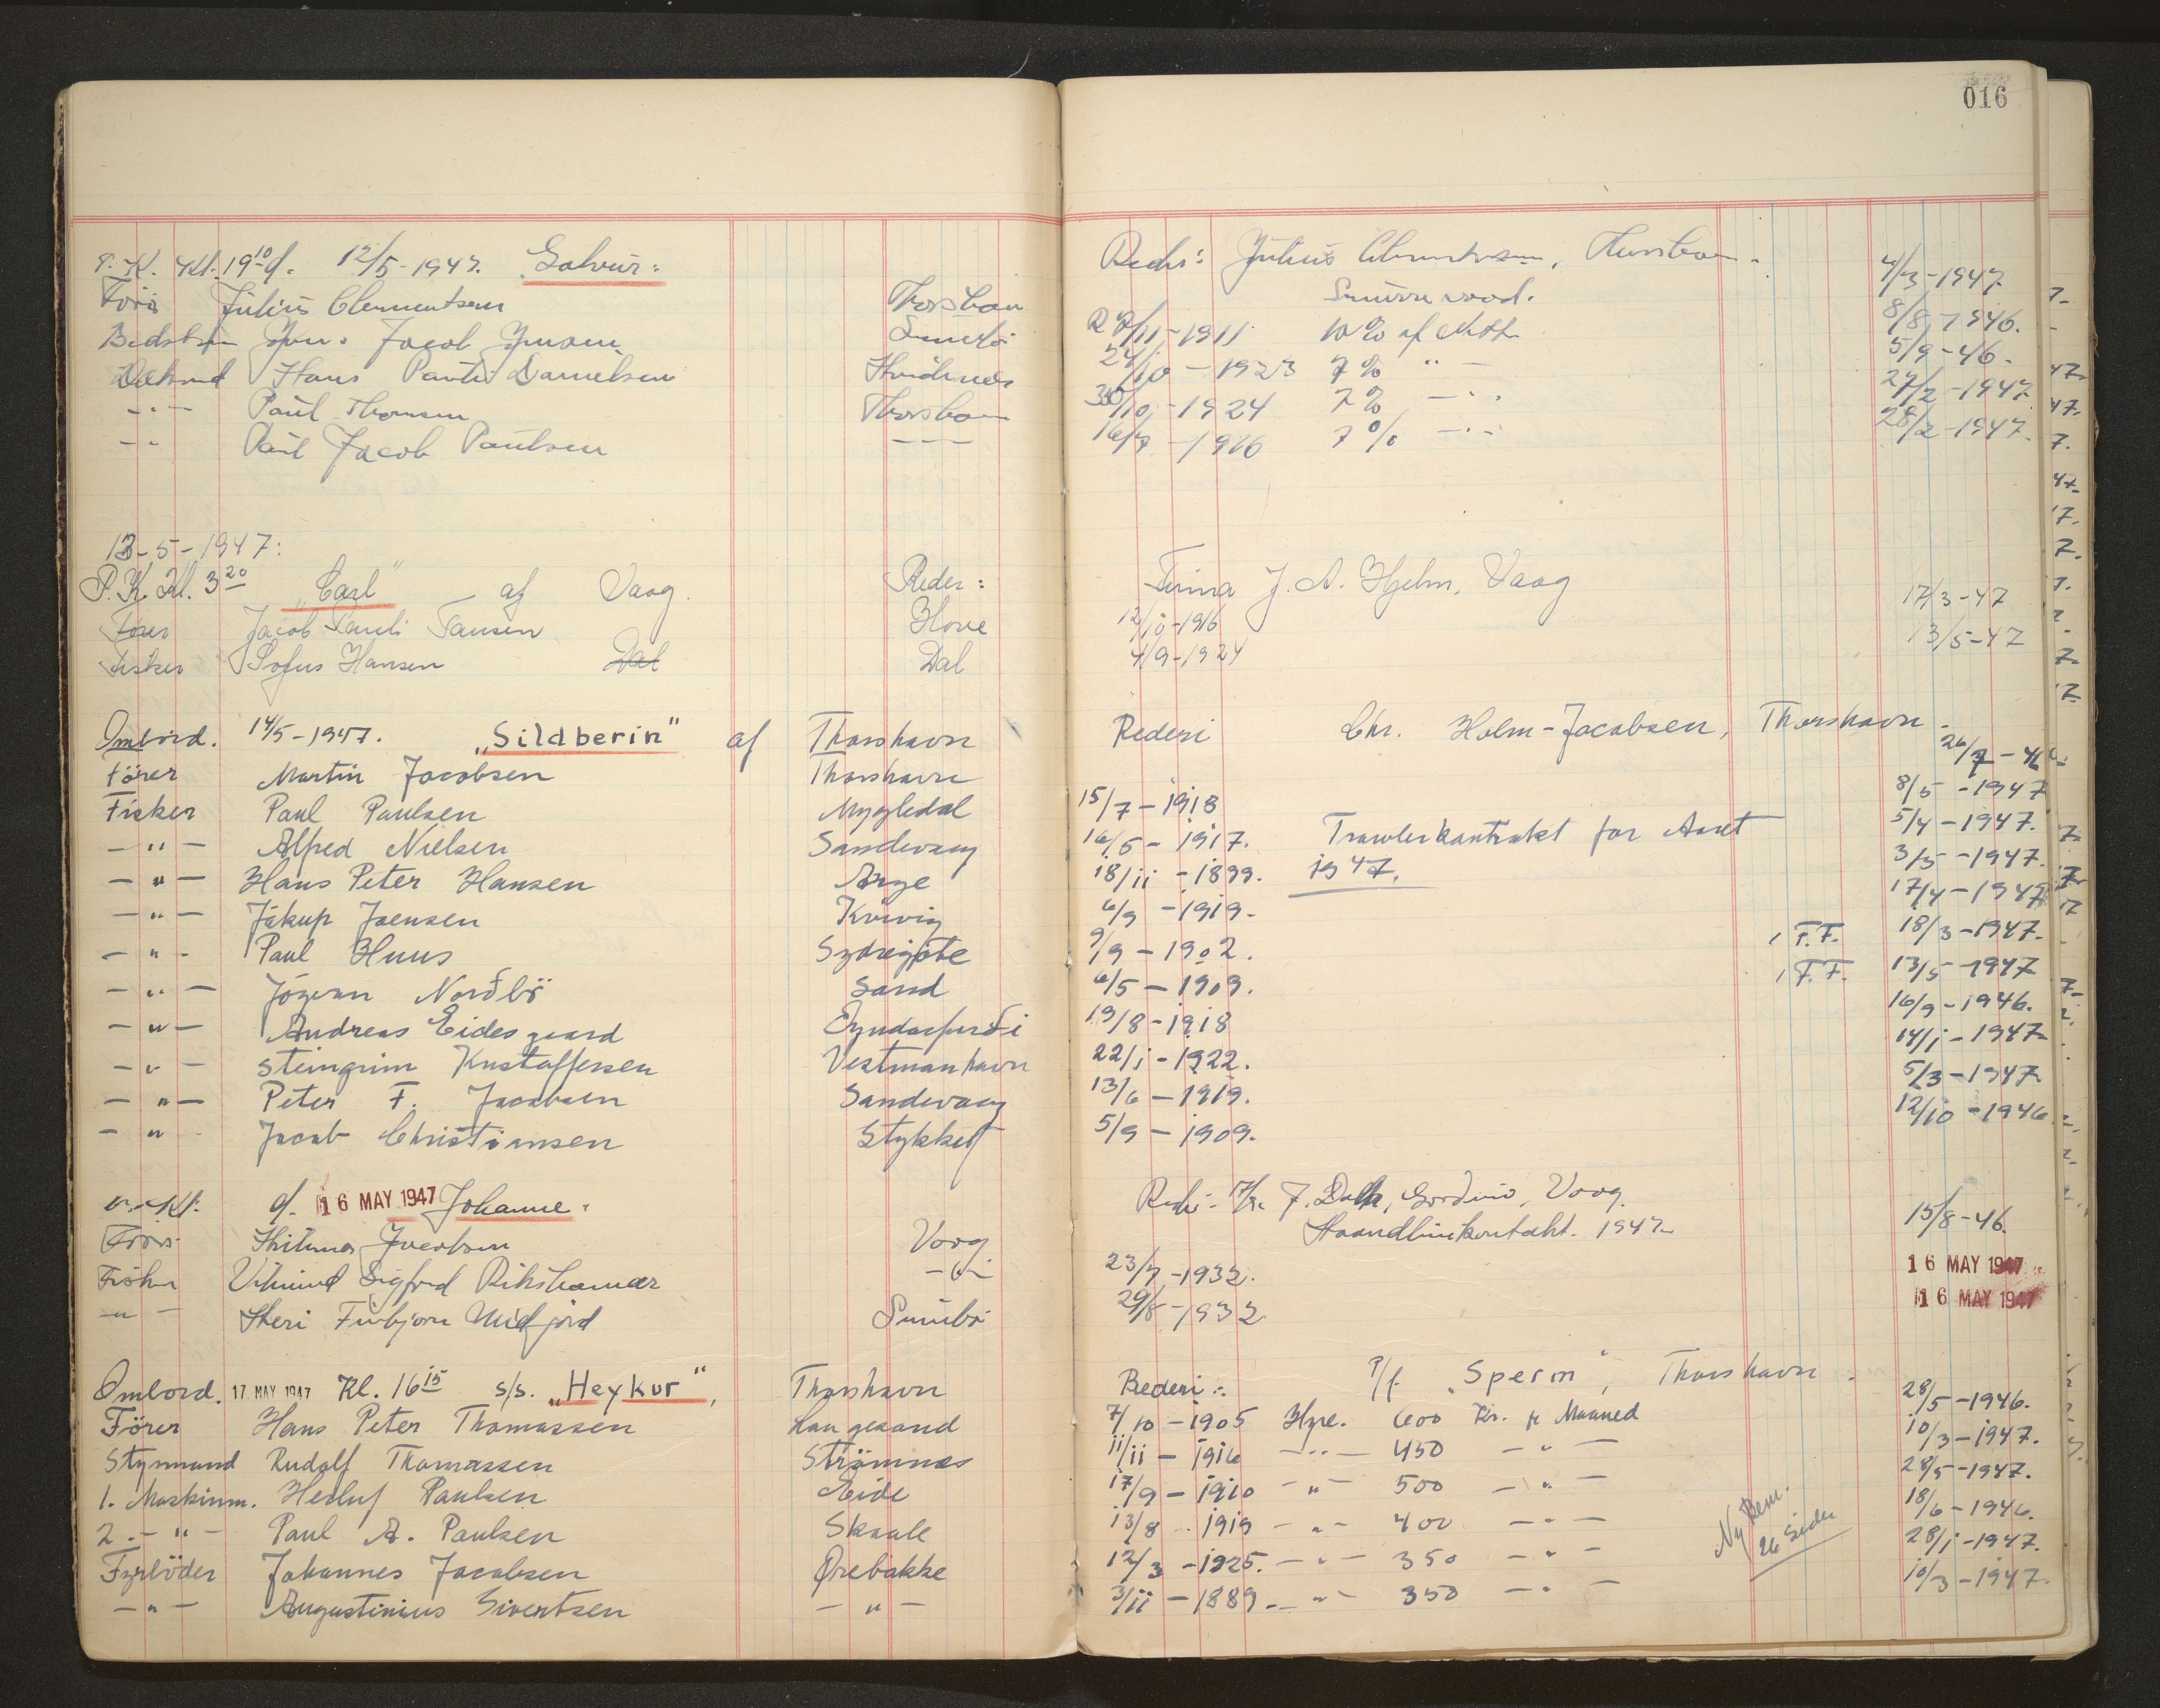 016
P.K. Kl. 19 10 d. 12/5-1947. Solvur: Reder: Julius Clementsen, Thorshavn. 4/3-1947
Förer Julius Clementsen Thorshavn
Bedstem Jens Jacob Jensen Sumbö 10% af 8/8-1946.
Dækmd Hans Pauli Danielsen Hvidenæs 24/10-1923 7% " - 5/9-46.
-"- Paul Thomsen Thorshavn 30/10-1924 7% -"- 27/2-1947
-"- Paul Jacob Paulsen --- 16/7-1926 7% -"- 28/2-1947.
13-5-1947:
P.K. Kl. 3 20 "Carl" af Vaag. Reder: Firma J. A. Hjelm, Vaag
Förer Jacob Pauli Hove 12/10-1916 17/3-47
Fisker Sofus Hansen Dal Dal 4/9-1924 13/5-47
Ombord. 14/5-1947. "Sildberin" af Thorshavn Rederi Chr. Holm-Jacobsen, Thorshavn.
Förer Martin Jacobsen Thorshavn 26/7-46
Fisker Paul Paulsen Mygledal 15/7-1918 8/5-1947
-"- Alfred Nielsen Sandevaag 16/5-1917. Trawlerkontrakt for Aaret 5/4-1947.
-"- Hans Peter Hansen Arge 18/11-1899. 1947. 3/5-1947.
-"- Jákup Joensen Kvivig 6/9-1919. 17/4-1947
-"- Paul Huus Sydregöte 9/9-1902. F.F. 18/3-1947.
-"- Jógvan Nordbö Sand 6/5-1909. F.F. 13/5-1947
-"- Andreas Eidesgaard Oyndarfirdi 19/8-1918 16/9-1946.
-"- Steingrim Kristoffersen Vestmanhavn 22/1-1922. 14/1-1947
-"- Peter F. Jacobsen Sandevaag 13/6-1919. 5/3-1947
-"- Jacob Christiansen Stykket 5/9-1909. 12/10-1946
d. 16 MAY 1947 Johanne. Reder: F. Dahl, Vaag.
Haandlinekontrakt. 1947
Förer Jacobsen Vaag 15/8-46.
Fisker Sigfred -"- 23/7-1932. 16 MAY 1947
-"- Finbjorn Midfjord Sumbö 29/8-1932 16 MAY 1947
Ombord. 17. MAY 1947 Kl. 16 15 s/s. "Heykur", Thorshavn Rederi: P/f "Sperm", Thorshavn.
Förer Hans Peter Thomassen Kongesand 7/10-1905 Hyre. 600 Kr. pr Maaned 28/5-1946.
Styrmand Rudolf Thomassen Strömnæs 11/11-1916 -"- 450 -"- 10/3-1947.
1. Maskinm. Herluf Paulsen Eide 17/9-1910 -"- 500 -"- 28/5-1947.
2. -"- Paul A. Paulsen Skaale 13/8 1919 -"- 400 -"- 18/6-1946.
Fyrböder Johannes Jacobsen Ørebakke 12/3-1925. -"- 350 -"- 28/1-1947.
-"- Augustinius Sivertsen -"- 3/11-1889 -"- 350 -"- 10/3-1947